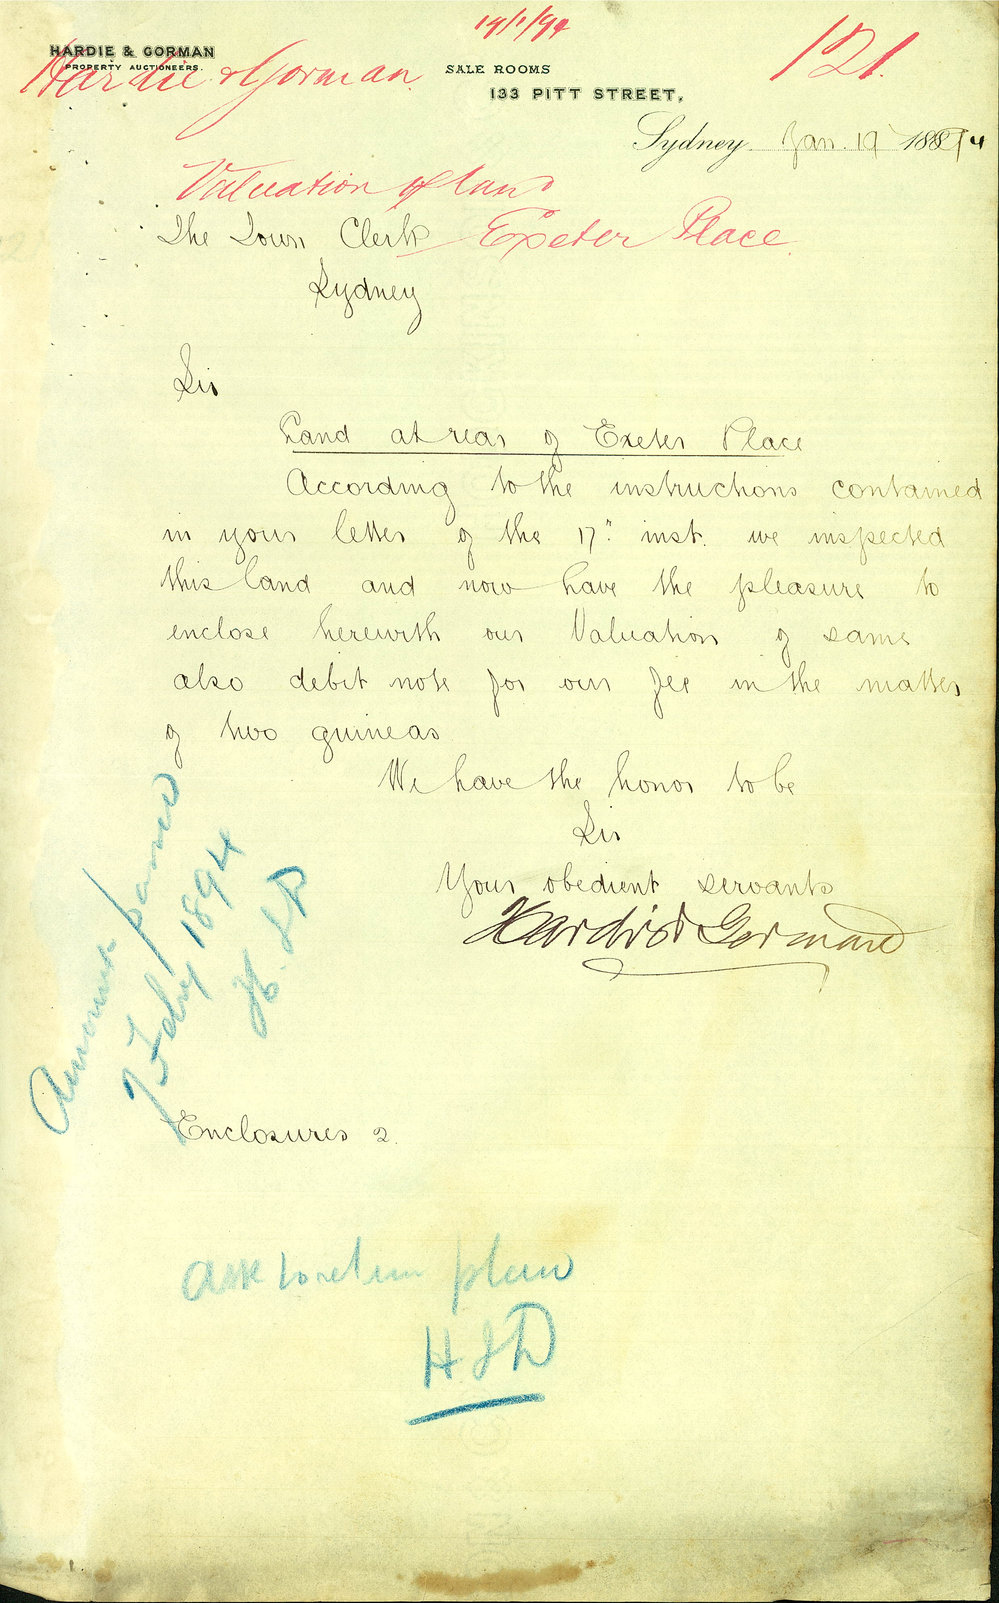 19/1/94
121.
HARDIE & GORMAN
PROPERTY AUCTIONEERS.
Hardie & Gorman.
SALE ROOMS
133 PITT STREET,
Sydney Jan. 19 1894
Valuation of land
Exeter Place
The Town Clerk
Sydney
Sir
Land at rear of Exeter Place
According to the instructions contained
in your letter of the 17" inst. we inspected
this land and now have the pleasure to
enclose herewith our Valuation of same
also debit note for our fee in the matter
of two guineas
We have the honor to be
Sir
Your obedient servants
Hardie & Gorman
Amount passed
7 Feby 1894
Enclosures 2.
Ask to return plan